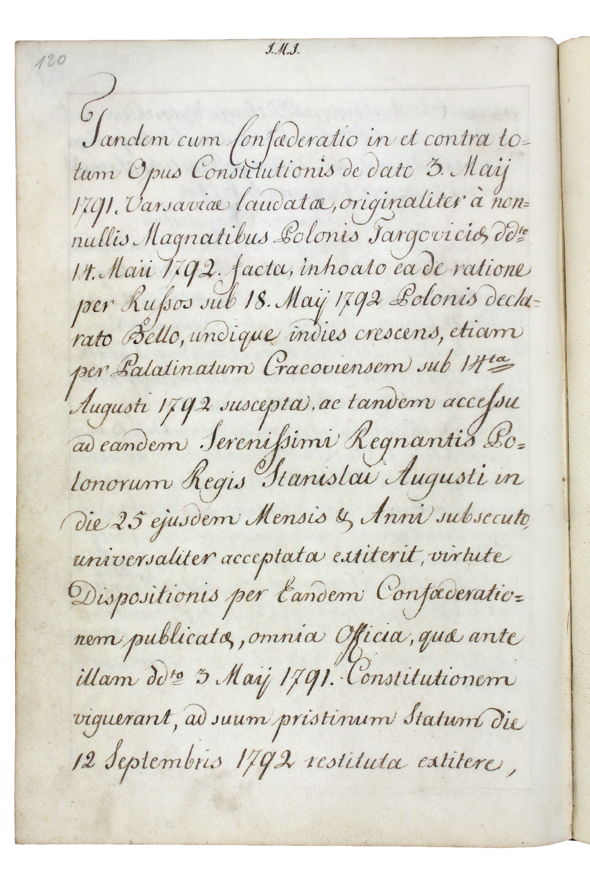 120
J.M.J.
Tandem cum Confæderatio in et contra to=
tum Opus Constitutionis de dato 3. Maij
1791. Varsaviæ laudatæ, originaliter à non=
nullis Magnatibus Polonis Targoviciæ ddto
14. Maii 1792. facta, inhoato ea de ratione
per Russos sub 18. Maij 1792 Polonis decla=
rato Bello, undique indies crescens, etiam
per Palatinatum Cracoviensem sub 14ta
Augusti 1792 suscepta, ac tandem accessu
ad eandem Serenissimi Regnantis Po=
lonorum Regis Stanislai Augusti in
die 25 ejusdem Mensis & Anni subsecuto,
universaliter acceptata extiterit, virtute
Dispositionis per Eandem Confæderatio=
nem publicatæ, omnia Officia, quæ ante
illam ddto 3 Maij 1791. Constitutionem
viguerant, ad suum pristinum Statum die
12 Septembris 1792 restituta extitere,